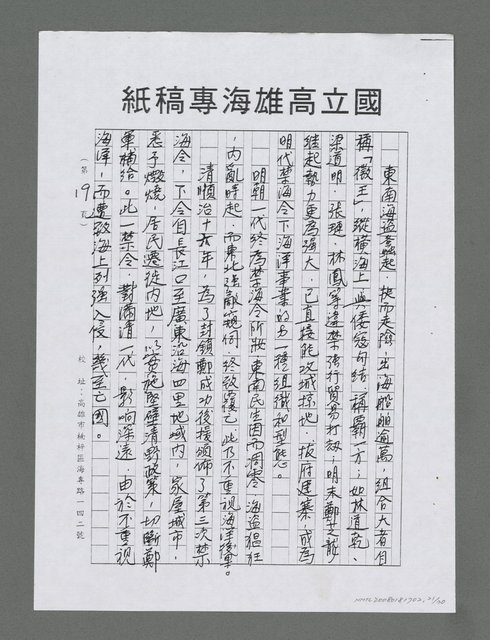 國立高雄海專稿紙
東南海盜蠭起,挺而走險,出海船舶逾萬,組合大者自
稱「徽王」,縱橫海上,與倭寇勾結,稱霸一方;如林道乾、
梁道明、張璉、林鳳等違禁強行貿易打刼;明末鄭芝龍
繼起勢力更為強大,已直接能攻城掠地、拔府建寨,成為
明代禁海令下海洋事業的另一種組織和型態。
明朝一代終為禁海令所斁,東南民生因而凋零,海盜猖狂
,內亂時起,而東北強敵窺伺,終致覆亡,此乃不重視海洋後果。
清順治十六年,為了封鎖鄭成功後援頒佈了第三次禁
海令,下令自長江口至廣東沿海四里地域內,家屋城市,
悉予燬燒,居民遷徙內地,以實施堅壁清野政策,切斷鄭
軍補給。此一禁令,對滿清一代,影响深遠,由於不重視
海洋,而遭致海上列強入侵,幾至亡國。
(第19頁)
校址:高雄市楠梓區海專路一四二號